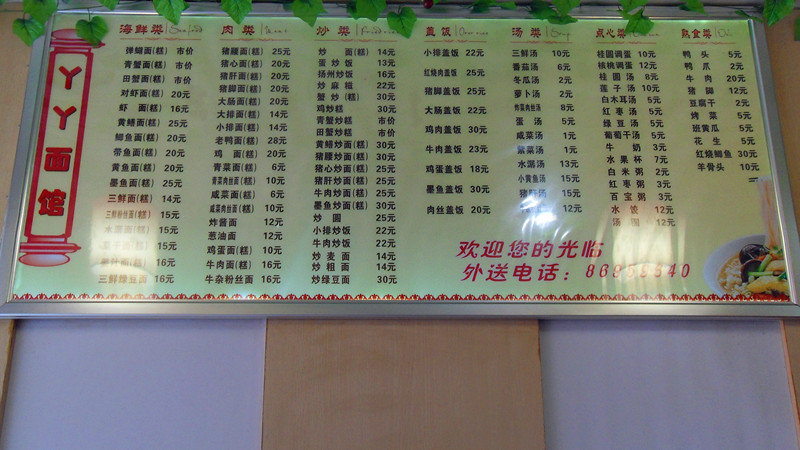 丫丫面馆
海鲜类
弹蝴面(糕) 市价
青蟹面(糕) 市价
田蟹面(糕) 市价
对虾面(糕) 20元
虾 面(糕) 16元
黄鳝面(糕) 25元
鲫鱼面(糕) 20元
带鱼面(糕) 20元
黄鱼面(糕) 20元
墨鱼面(糕) 25元
三鲜面(糕) 14元
三鲜粉丝面(糕) 15元
水潺面(糕) 15元
15元
16元
三鲜绿豆面 16元
肉类
猪腰面(糕) 25元
猪心面(糕) 25元
猪肝面(糕) 20元
猪脚面(糕) 20元
大肠面(糕) 20元
大排面(糕) 14元
小排面(糕) 14元
老鸭面(糕) 28元
鸡 面(糕) 20元
青菜面(糕) 6元
青菜肉丝面(糕) 10元
咸菜面(糕) 6元
咸菜肉丝面(糕) 10元
炸酱面 12元
葱油面 12元
鸡蛋面(糕) 10元
牛肉面(糕) 16元
牛杂粉丝面 16元
炒类
炒 面(糕) 14元
蛋炒饭 13元
扬州炒饭 16元
炒麻糍 22元
蟹炒(糕) 30元
鸡炒糕 30元
青蟹炒糕 市价
田蟹炒糕 市价
黄鳝炒面(糕) 30元
猪腰炒面(糕) 30元
猪心炒面(糕) 25元
猪肝炒面(糕) 25元
牛肉炒面(糕) 25元
墨鱼炒面(糕) 30元
炒 圆 25元
小排炒饭 22元
牛肉炒饭 22元
炒麦面 14元
炒粗面 14元
炒绿豆面 30元
盖饭
小排盖饭 22元
红烧肉盖饭 25元
猪脚盖饭 25元
大肠盖饭 22元
鸡肉盖饭 30元
牛肉盖饭 23元
鸡蛋盖饭 18元
墨鱼盖饭 30元
肉丝盖饭 20元
汤类 Soup
三鲜汤 10元
番茄汤 6元
冬瓜汤 2元
萝卜汤 2元
炸菜肉丝汤 8元
蛋 汤 5元
咸菜汤 1元
紫菜汤 1元
水潺汤 13元
小黄鱼汤 15元
猪肝汤 15元
12元
点心类
桂圆调蛋 10元
核桃调蛋 12元
桂圆汤 8元
莲子汤 10元
白木耳汤 5元
红枣汤 5元
绿豆汤 5元
葡萄干汤 5元
牛 奶 3元
水果杯 7元
白米粥 2元
红枣粥 3元
百宝粥 3元
水 饺 12元
汤 12元
熟食类
鸭 头 5元
鸭 爪 2元
牛 肉 20元
猪 脚 12元
豆腐干 2元
烤 菜 5元
班黄瓜 5元
花 生 5元
红烧鲫鱼 30元
羊骨头 10元
欢迎您的光临
外送电话：